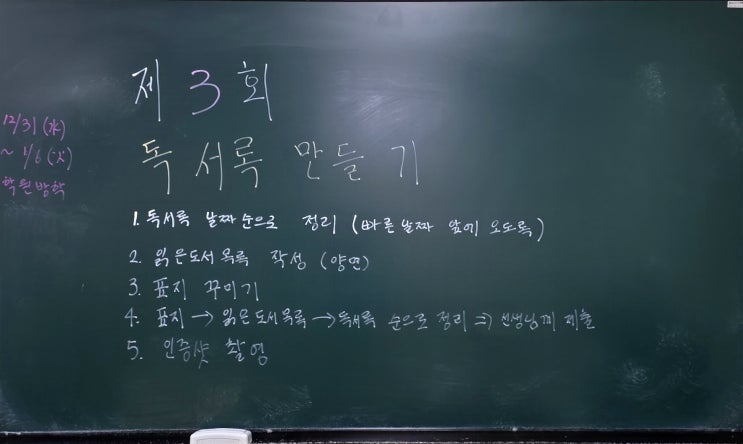 제 3 회
독서록 만들기
12/31(水)
~ 1/6(火)
학원방학
1. 독서록 날짜순으로 정리 (빠른날짜 앞에 오도록)
2. 읽은도서목록 작성 (양면)
3. 표지 꾸미기
4. 표지 → 읽은도서목록 → 독서록 순으로 정리 => 선생님께 제출
5. 인증샷 촬영